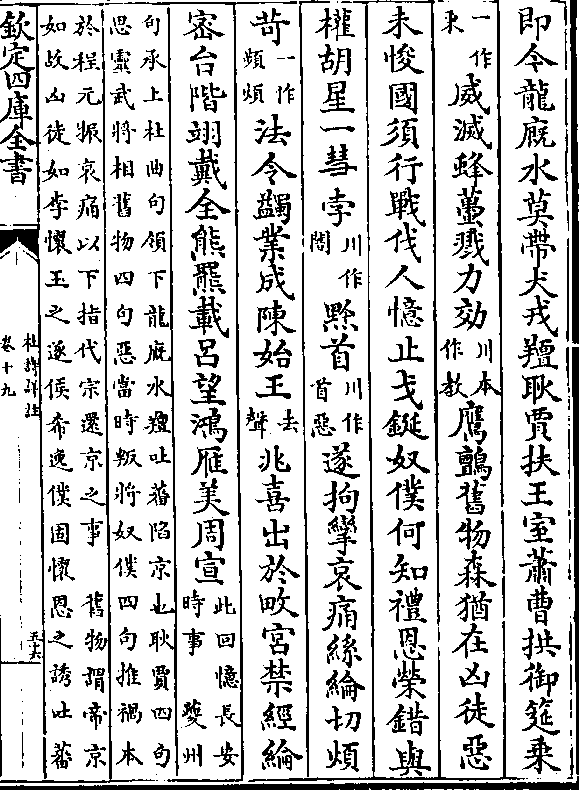 即今龍廐水莫帶犬戎羶耿賈扶王室蕭曹拱御筵乗
一作來威滅蜂蠆戮力効川本作教鷹鸇舊物森猶在凶徒惡
未悛國須行戰伐人憶止戈鋋奴僕何知禮恩榮錯與
權胡星一彗孛川作闇黔首川作首惡遂拘攣哀痛絲綸切煩
苛一作頻煩法令蠲業成陳始王去聲兆喜出於畋宫禁經綸
密台階翊戴全熊羆載吕望鴻雁美周宣此回憶長安時事 夔州
句承上杜曲句領下龍廐水羶吐蕃陷京也耿賈四句
思靈武將相舊物四句惡當時叛將奴僕四句推禍本
於程元振哀痛以下指代宗還京之事 舊物謂帝京
如故凶徒如李懷玉之逐侯希逸僕固懷恩之誘吐蕃
欽定四庫全書
杜詩詳註
卷十九
五十六